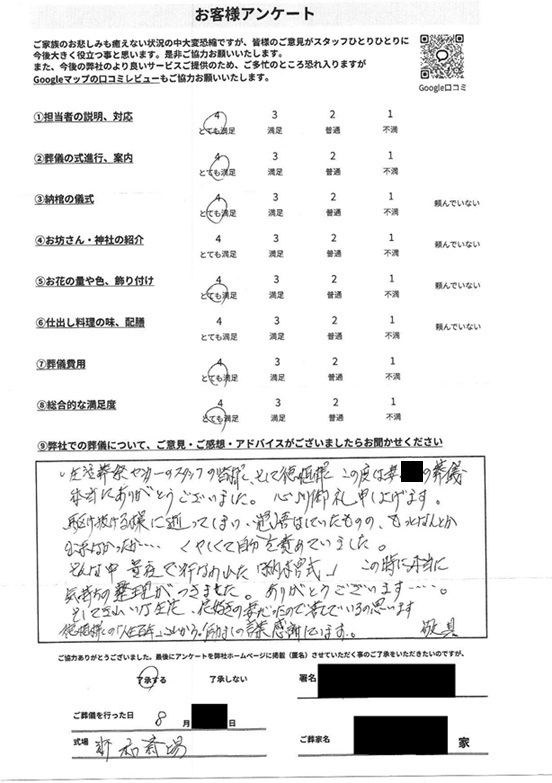 お客様アンケート
ご家族のお悲しみも癒えない状況の中大変恐縮ですが、皆様のご意見がスタッフひとりひとりに
今後大きく役立つ事と思います。是非ご協力お願いいたします。
また、今後の弊社のより良いサービスご提供のため、ご多忙のところ恐れ入りますが
Googleマップの口コミレビューもご協力お願いいたします。
Google口コミ
①担当者の説明、対応 4 3 2 1
とても満足 満足 普通 不満
②葬儀の式進行、案内 4 3 2 1
とても満足 満足 普通 不満
③納棺の儀式 4 3 2 1 頼んでいない
とても満足 満足 普通 不満
④お坊さん・神社の紹介 4 3 2 1 頼んでいない
とても満足 満足 普通 不満
⑤お花の量や色、飾り付け 4 3 2 1 頼んでいない
とても満足 満足 普通 不満
⑥仕出し料理の味、配膳 4 3 2 1 頼んでいない
とても満足 満足 普通 不満
⑦葬儀費用 4 3 2 1
とても満足 満足 普通 不満
⑧総合的な満足度 4 3 2 1
とても満足 満足 普通 不満
⑨弊社での葬儀について、ご意見・ご感想・アドバイスがございましたらお聞かせください
スタッフの皆様、そして徳植様 この度は妻 の葬儀
本当にありがとうございました。心より御礼申し上げます。
駆け抜ける様に逝ってしまい、覚悟はしていたものの、もっとなんとか
くやしくて自分を責めていました。
そんな中 で行なわれた「納棺式」 この時に本当に
気持ちの整理がつきました。ありがとうございます……。
そして 思います
徳植様の 感謝しています。 敬具
ご協力ありがとうございました。最後にアンケートを弊社ホームページに掲載（匿名）させていただく事のご了承をいただきたいのですが、
了承する 了承しない 署名
ご葬儀を行った日 8 月 日
式場 斎場 ご葬家名 家